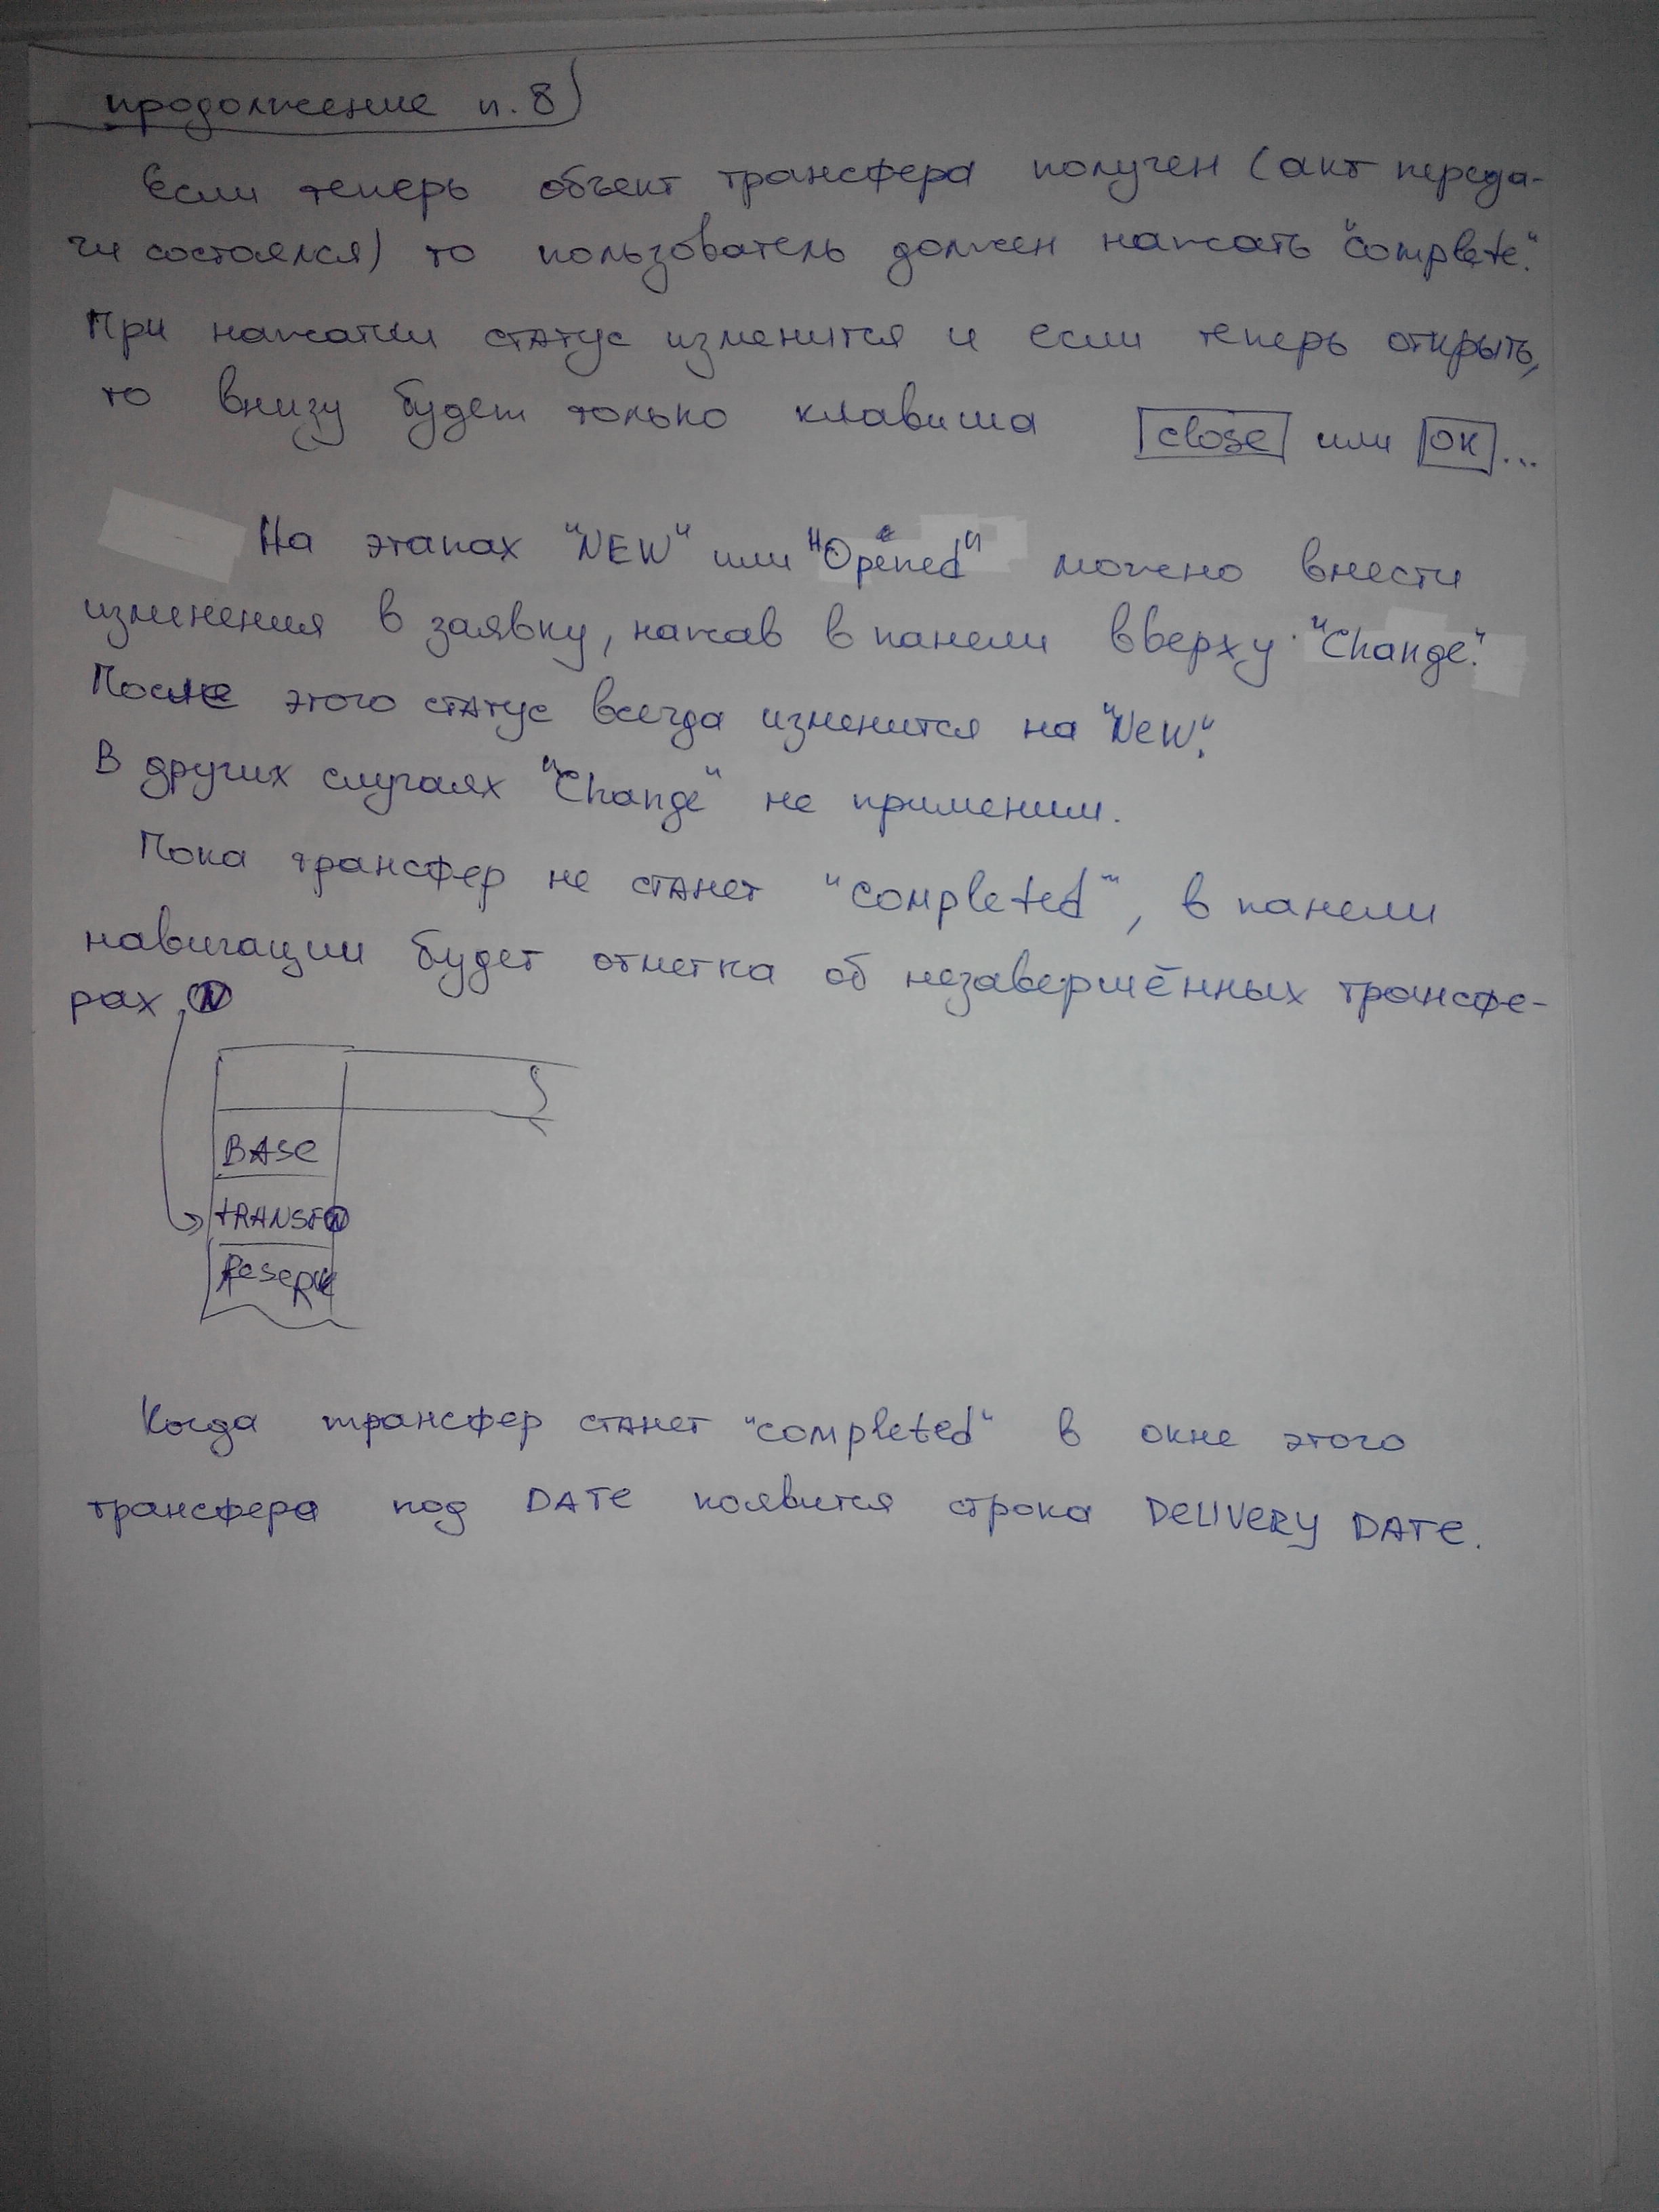 продолжение п. 8)
Если теперь объект трансфера получен (акт переда-
чи состоялся) то пользователь должен нажать "complete".
При нажатии статус изменится и если теперь открыть,
то внизу будет только клавиша close или OK...
На этапах "NEW" или "Opened" можно внести
изменения в заявку, нажав в панели вверху "Change".
После этого статус всегда изменится на "New".
В других случаях "Change" не применим.
Пока трансфер не станет "completed", в панели
навигации будет отметка об незавершённых трансфе-
рах N
BASE
TRANSF N
Reserve
Когда трансфер станет "completed" в окне этого
трансфера под DATE появится строка DELIVERY DATE.